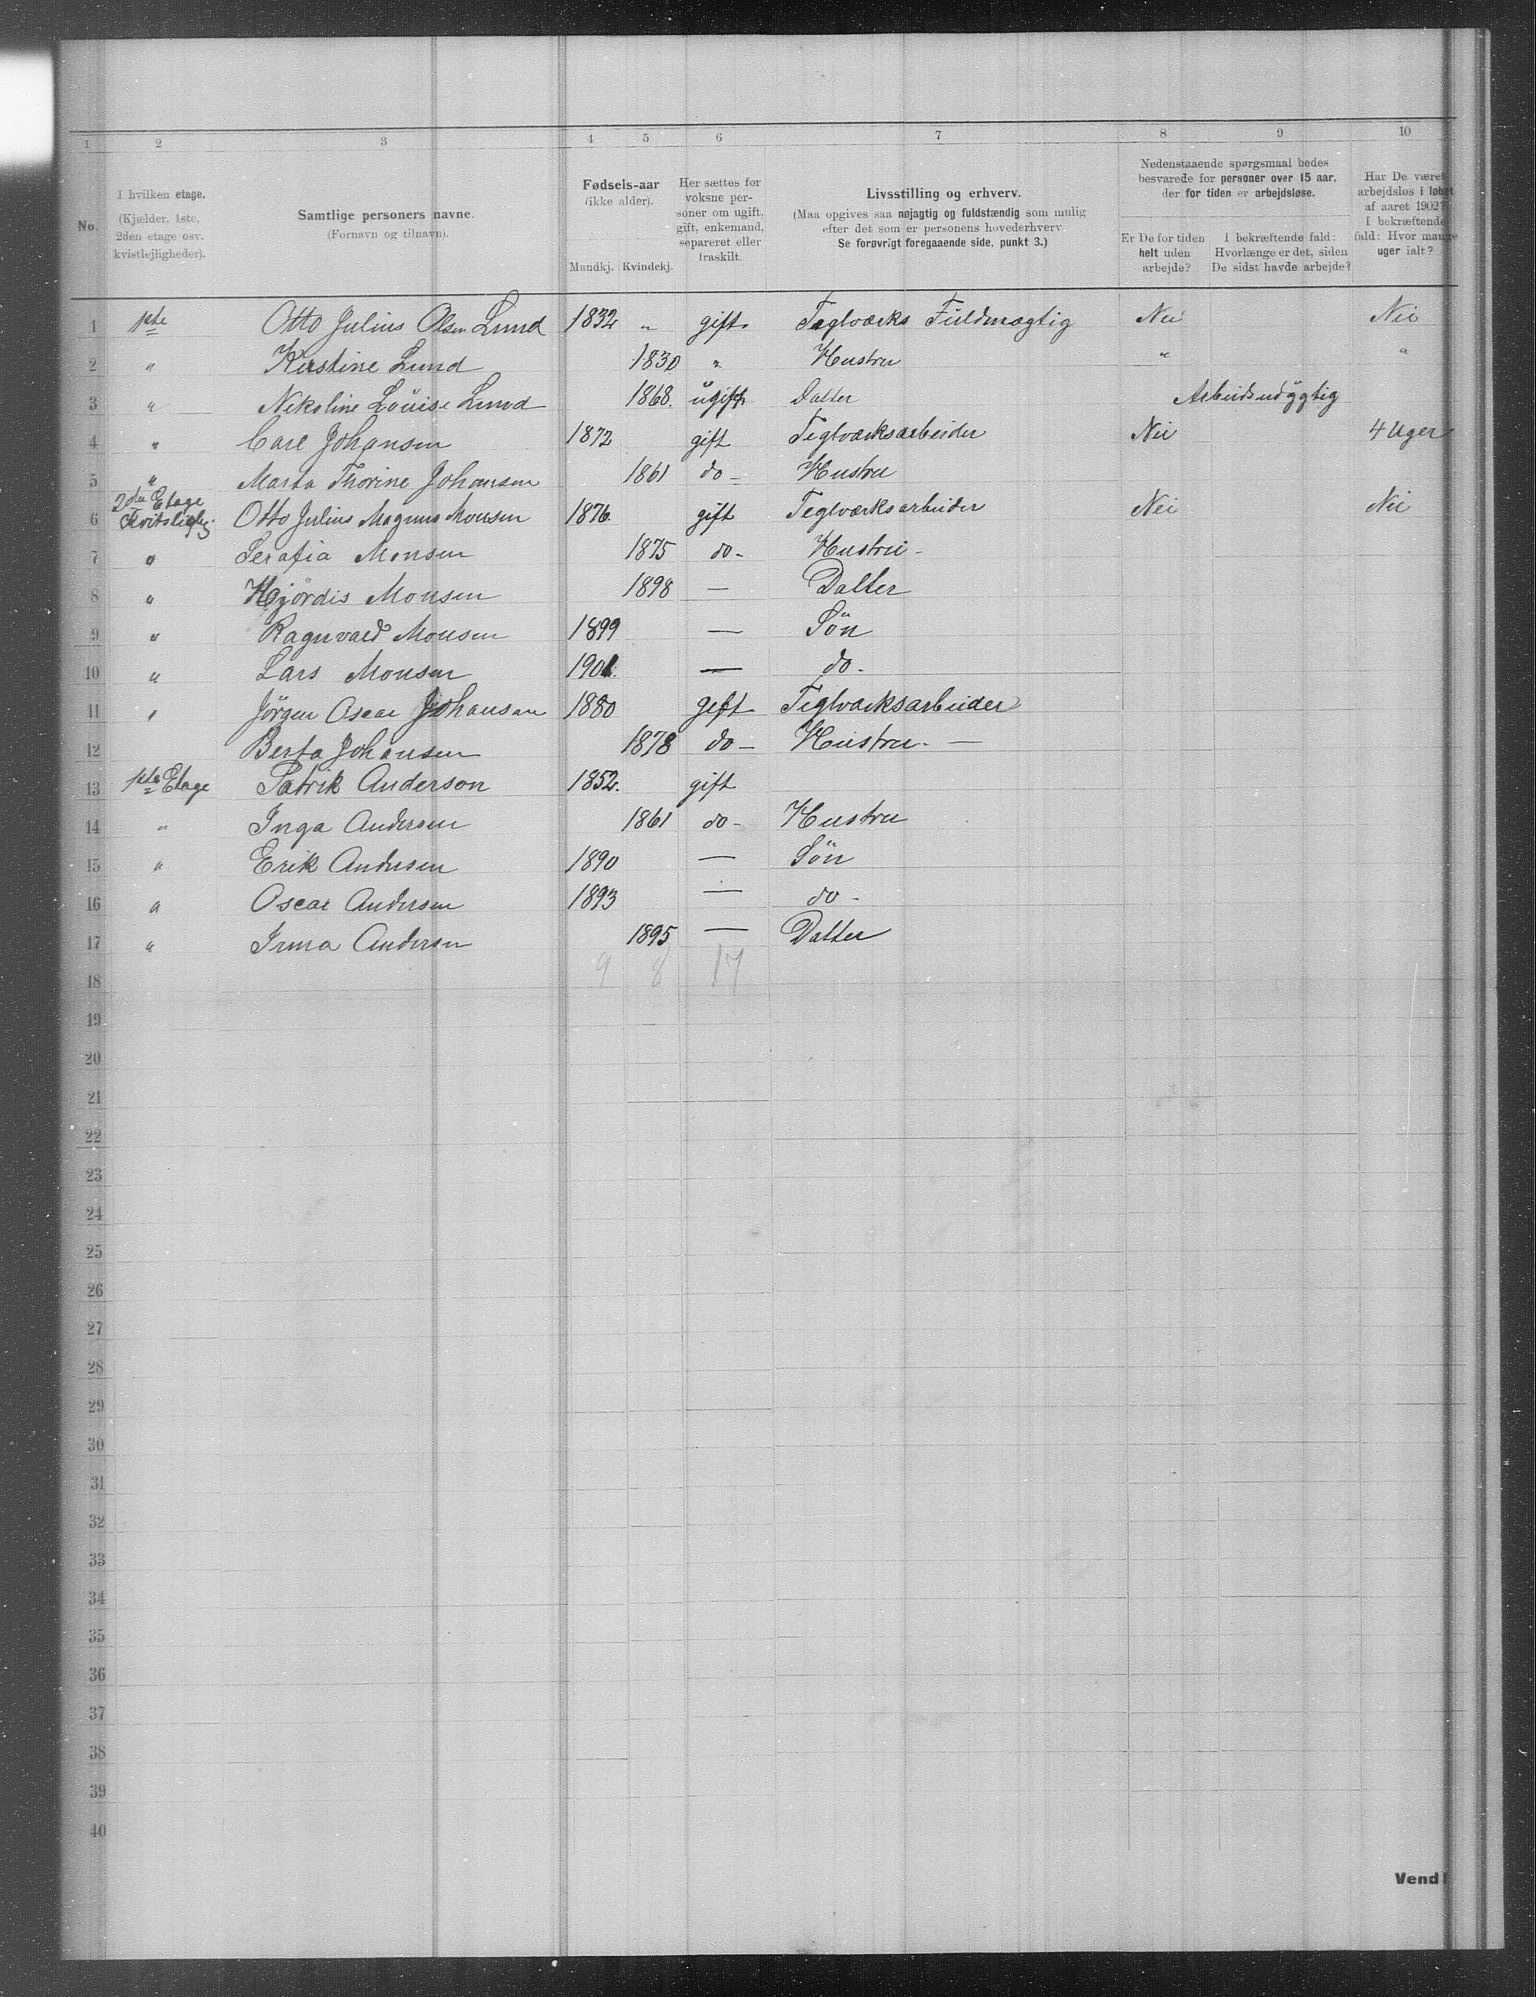 1 2 3 4 5 6 7 8 9 10
No.
I hvilken etage.
(Kjælder, 1ste,
2den etage osv.
kvistlejligheder).
Samtlige personers navne.
(Fornavn og tilnavn).
Fødsels-aar
(ikke alder).
Mandkj. Kvindekj.
Her sættes for
voksne per-
soner om ugift,
gift, enkemand,
separeret eller
fraskilt.
Livsstilling og erhverv.
(Maa opgives saa nøjagtig og fuldstændig som mulig
efter det som er personens hovederhverv.
Se forøvrigt foregaaende side, punkt 3.)
Nedenstaaende spørgsmaal bedes
besvarede for personer over 15 aar,
der for tiden er arbejdsløse.
Er De for tiden
helt uden
arbejde?
I bekræftende fald:
Hvorlænge er det, siden
De sidst havde arbejde?
Har De været
arbejdsløs i løbet
af aaret 1902?
I bekræftende
fald: Hvor mange
uger ialt?
1 1ste Otto Julius Olsen Lund 1832 " gift Teglværks Fuldmægtig Nei Nei
2 " Kirstine Lund 1830 " Hustru " "
3 " Nikoline Louise Lund 1868. ugift Datter Arbeidsudygtig
4 " Carl Johansen 1872 gift Teglværksarbeider Nei 4 Uger
5 " Marta Thorine Johansen 1861 do - Hustru
2den Etage
6 Kvistleilig. Otto Julius Magnus Monsen 1876. gift Teglværksarbeider Nei Nei
7 " Serafia Monsen 1875 do - Hustru -
8 " Hjørdis Monsen 1898 — Datter
9 " Ragnvald Monsen 1899 — Søn
10 " Lars Monsen 1901. — do -
11 " Jørgen Oscar Johansen 1880 gift Teglværksarbeider
12 Berta Johansen 1878 do — Hustru. —
13 1ste Etage Patrik Anderson 1852. gift
14 " Inga Andersen 1861 do - Hustru
15 " Erik Andersen 1890 — Søn
16 " Oscar Andersen 1893 — do -
17 " Irma Andersen 1895 — Datter
18 9 8 17
19
20
21
22
23
24
25
26
27
28
29
30
31
32
33
34
35
36
37
38
39
40
Vend!